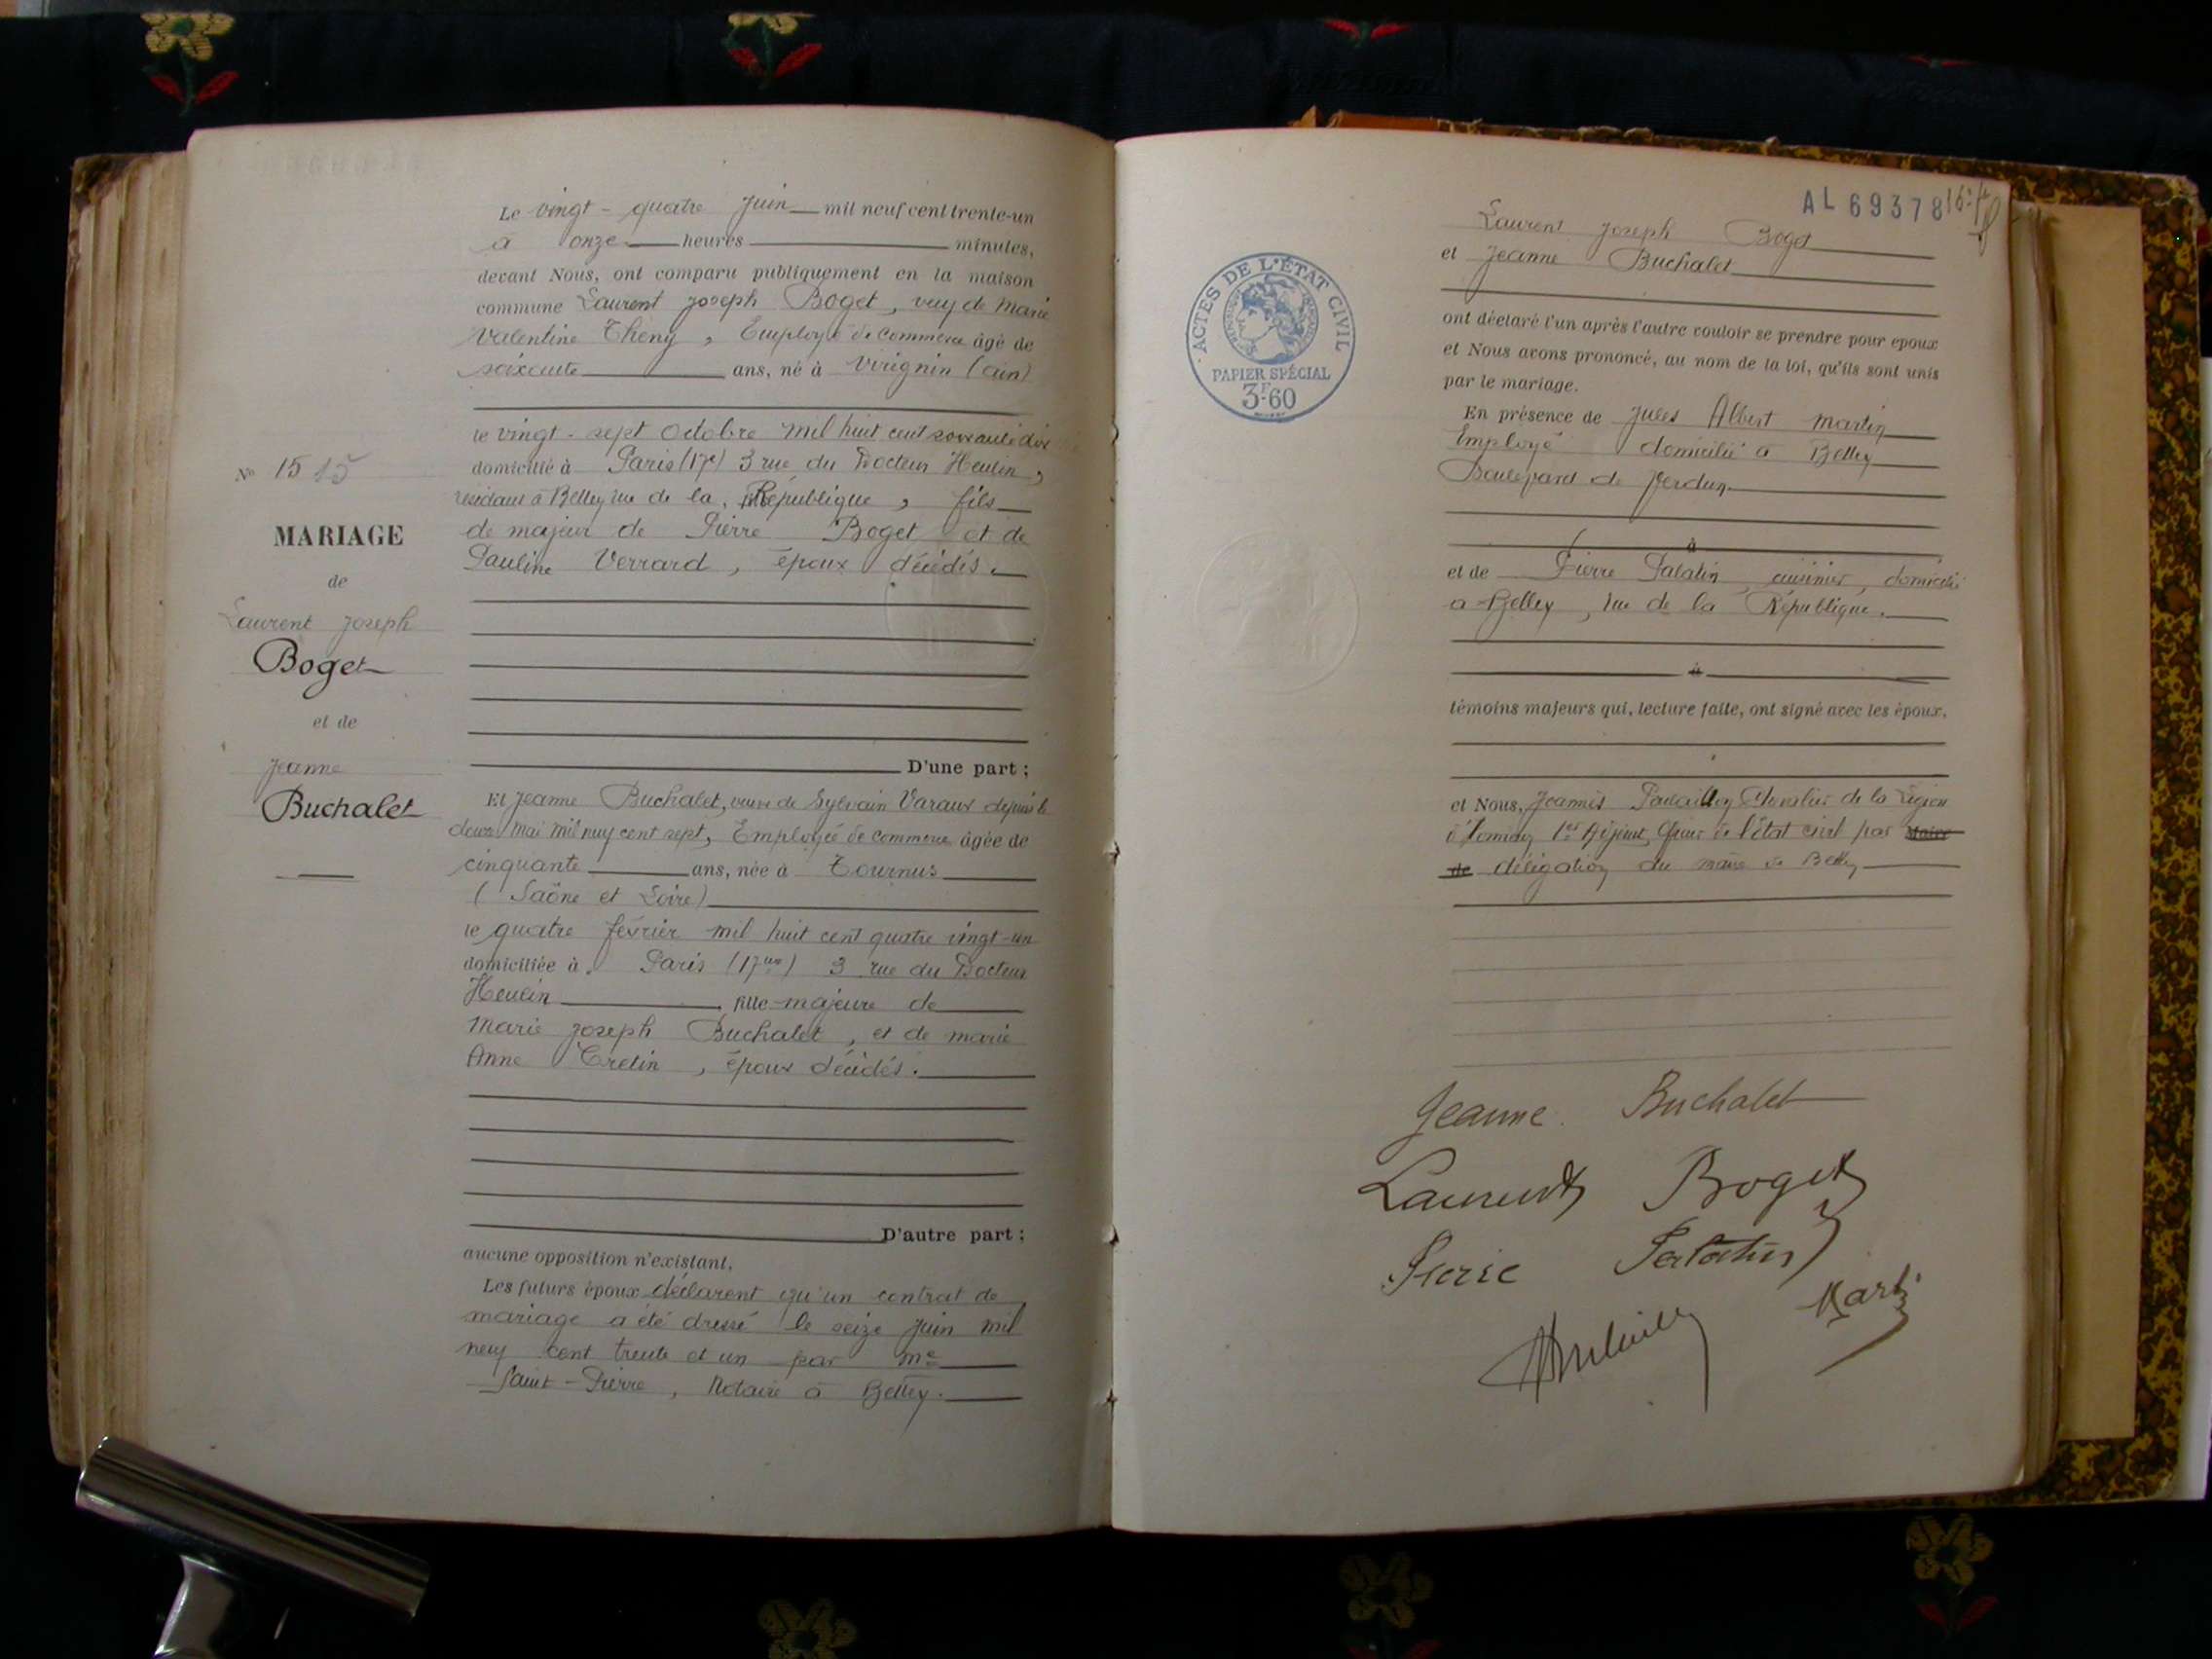 Le vingt-quatre Juin mil neuf cent trente-un
à onze heures minutes,
devant Nous, ont comparu publiquement en la maison
commune Laurent Joseph Boget, veuf de Marie
Valentine Theny, Employé de commerce âgé de
soixante ans, né à Virignin (Ain)
le vingt-sept Octobre mil huit cent soixante dix
domicilié à Paris (17e) 3 rue du Docteur Heulin,
résidant à Belley rue de la République, fils
de majeur de Pierre Boget et de
Pauline Verrard, époux décédés.
D'une part ;
No 15 15
MARIAGE
de
Laurent Joseph
Boget
et de
Jeanne
Buchalet
Et Jeanne Buchalet, veuve de Sylvain Varaux depuis le
deux Mai mil neuf cent sept, Employée de commerce âgée de
cinquante ans, née à Tournus
(Saône et Loire)
le quatre février mil huit cent quatre vingt-un
domiciliée à Paris (17me) 3 rue du Docteur
Heulin fille majeure de
Marie Joseph Buchalet, et de Marie
Anne Cretin, époux décédés.
D'autre part ;
aucune opposition n'existant.
Les futurs époux déclarent qu'un contrat de
mariage a été dressé le seize Juin mil
neuf cent trente et un par Me
Saint-Pierre, Notaire à Belley.
AL 69378
ACTES DE L'ÉTAT CIVIL
PAPIER SPÉCIAL
3F60
Laurent Joseph Boget
et Jeanne Buchalet
ont déclaré l'un après l'autre vouloir se prendre pour époux
et Nous avons prononcé, au nom de la loi, qu'ils sont unis
par le mariage.
En présence de Jules Albert Martin
Employé domicilié à Belley
Boulevard de Verdun
à
et de Pierre Palatin, cuisinier, domicilié
à Belley, rue de la République.
à
témoins majeurs qui, lecture faite, ont signé avec les époux,
et Nous, Joannès Chevalier de la Légion
d'honneur 1er Adjoint, Officier de l'état civil par Maire
de délégation du maire de Belley
Jeanne Buchalet
Laurent Boget
Pierre Palatin
Martin